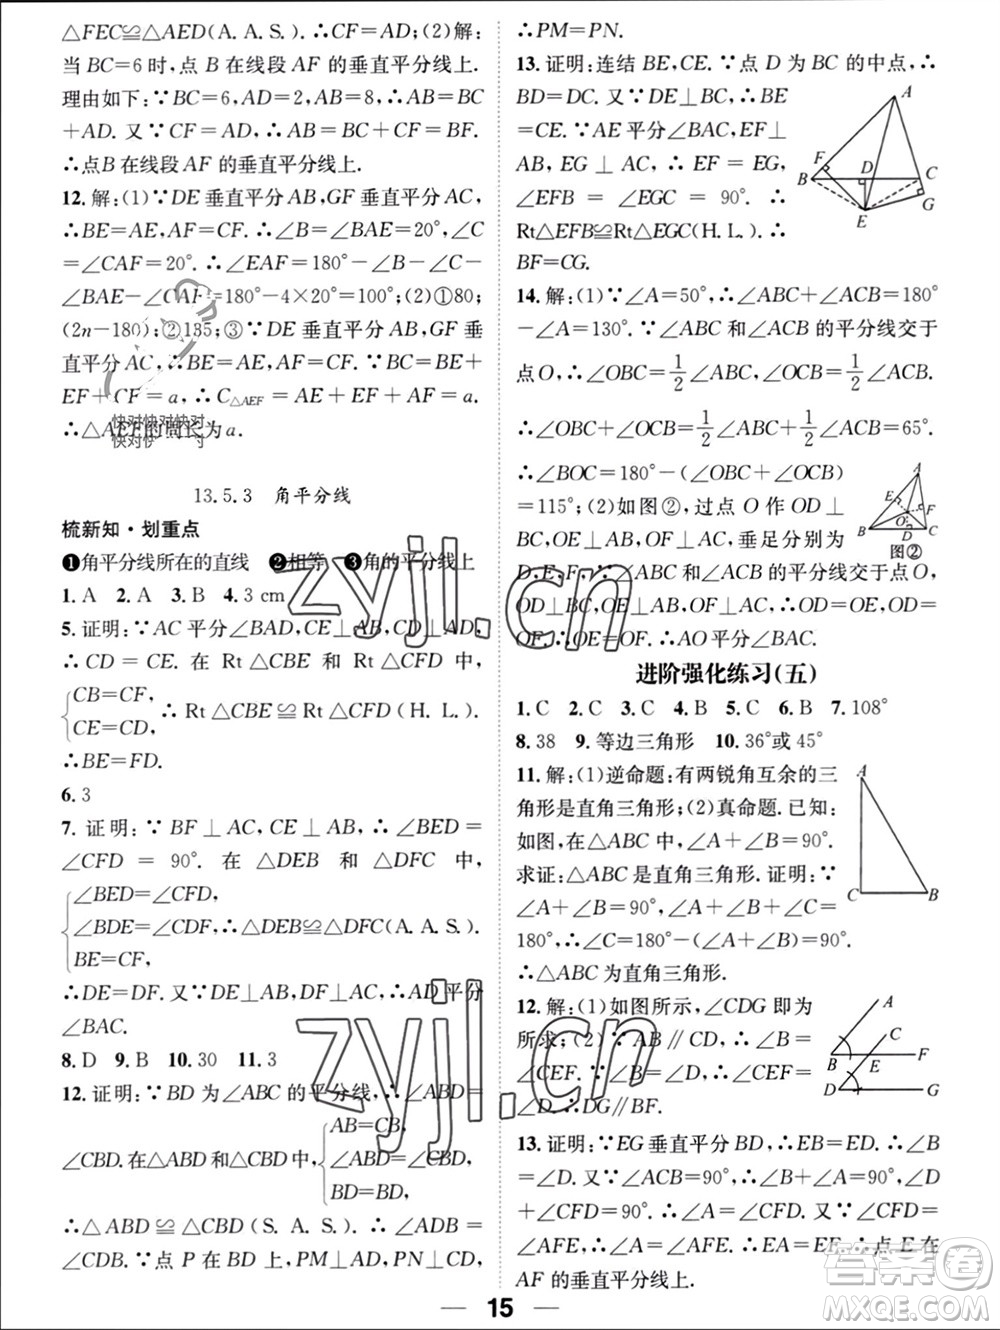 △FEC≌△AED(A. A. S.). ∴CF=AD;(2)解:
当 BC=6 时,点 B 在线段 AF 的垂直平分线上.
理由如下:∵BC=6,AD=2,AB=8,∴AB=BC
+AD. 又∵CF=AD,∴AB=BC+CF=BF.
∴点B 在线段 AF 的垂直平分线上.
12. 解:(1)∵DE 垂直平分 AB,GF 垂直平分 AC,
∴BE=AE,AF=CF. ∴∠B=∠BAE=20°,∠C
=∠CAF=20°. ∴∠EAF=180°-∠B-∠C-
∠BAE-∠CAF=180°-4×20°=100°;(2)①80;
(2n-180);②135;③∵DE 垂直平分 AB,GF 垂
直平分 AC,∴BE=AE,AF=CF. ∵BC=BE+
EF+CF=a,∴C△AEF=AE+EF+AF=a.
∴△AEF的周长为 a.
13.5.3 角平分线
梳新知·划重点
❶角平分线所在的直线 ❷相等 ❸角的平分线上
1. A 2. A 3. B 4. 3 cm
5. 证明:∵AC 平分∠BAD,CE⊥AB,CF⊥AD,
∴CD=CE. 在 Rt△CBE 与 Rt△CFD 中,
{CB=CF,
CE=CD, ∴Rt△CBE≌Rt△CFD(H. L.).
∴BE=DF.
6. 3
7. 证明:∵BF⊥AC,CE⊥AB,∴∠BED=
∠CFD=90°. 在△DEB 和△DFC 中,
{∠BED=∠CFD,
∠BDE=∠CDF, ∴△DEB≌△DFC(A. A. S.).
BE=CF,
∴DE=DF. 又∵DE⊥AB,DF⊥AC,∴AD 平分
∠BAC.
8. D 9. B 10. 30 11. 3
12. 证明:∵BD 为∠ABC 的平分线,∴∠ABD=
∠CBD. 在△ABD 和△CBD 中, {AB=CB,
∠ABD=∠CBD,
BD=BD,
∴△ABD≌△CBD(S. A. S.). ∴∠ADB=
∠CDB. ∵点 P 在 BD 上,PM⊥AD,PN⊥CD,
∴PM=PN.
13. 证明:连结 BE,CE. ∵点 D 为 BC 的中点,∴
BD=DC. 又∵DE⊥BC,∴BE
=CE. ∵AE平分∠BAC,EF⊥
AB,EG⊥AC,∴EF=EG,
∠EFB=∠EGC=90°. ∴
Rt△EFB≌Rt△EGC(H. L.). ∴
BF=CG.
A
F
B
D
C
G
E
14. 解:(1)∵∠A=50°,∴∠ABC+∠ACB=180°
-∠A=130°. ∵∠ABC 和∠ACB 的平分线交于
点O,∴∠OBC=1/2∠ABC,∠OCB=1/2∠ACB.
∴∠OBC+∠OCB=1/2∠ABC+1/2∠ACB=65°.
∴∠BOC=180°-(∠OBC+∠OCB)=180°-65°
=115°;(2)如图②,过点 O 作 OD⊥
BC,OE⊥AB,OF⊥AC,垂足分别为
D,E,F,∵∠ABC 和∠ACB 的平分线交于点 O,
OD⊥BC,OE⊥AB,OF⊥AC,∴OD=OE,OD=
OF. ∴OE=OF. ∴AO 平分∠BAC.
A
E
F
O
B
D
C
图②
进阶强化练习(五)
1. C 2. C 3. C 4. B 5. C 6. B 7. 108°
8. 38 9. 等边三角形 10. 36°或 45°
11. 解:(1)逆命题:有两锐角互余的三
角形是直角三角形;(2)真命题. 已知:
如图,在△ABC 中,∠A+∠B=90°.
求证:△ABC 是直角三角形. 证明:∵
∠A+∠B=90°,∠A+∠B+∠C=
180°,∴∠C=180°-(∠A+∠B)=90°.
∴△ABC 为直角三角形.
A
C
B
12. 解:(1)如图所示,∠CDG 即为
所求;(2)∵AB∥CD,∴∠B=
∠CEF. ∵∠B=∠D,∴∠CEF=
∠D. ∴DG∥BF.
A
C
B
E
F
D
G
13. 证明:∵EG 垂直平分 BD,∴EB=ED. ∴∠B
=∠D. 又∵∠ACB=90°,∴∠B+∠A=90°,∠D
+∠CFD=90°. ∴∠A=∠CFD. 又∵∠AFE=
∠CFD,∴∠A=∠AFE. ∴EA=EF. ∴点 E 在
AF 的垂直平分线上.
— 15 —
zyjl.cn
zyjl.cn
快对快对快对
答案圈
MXQE.COM